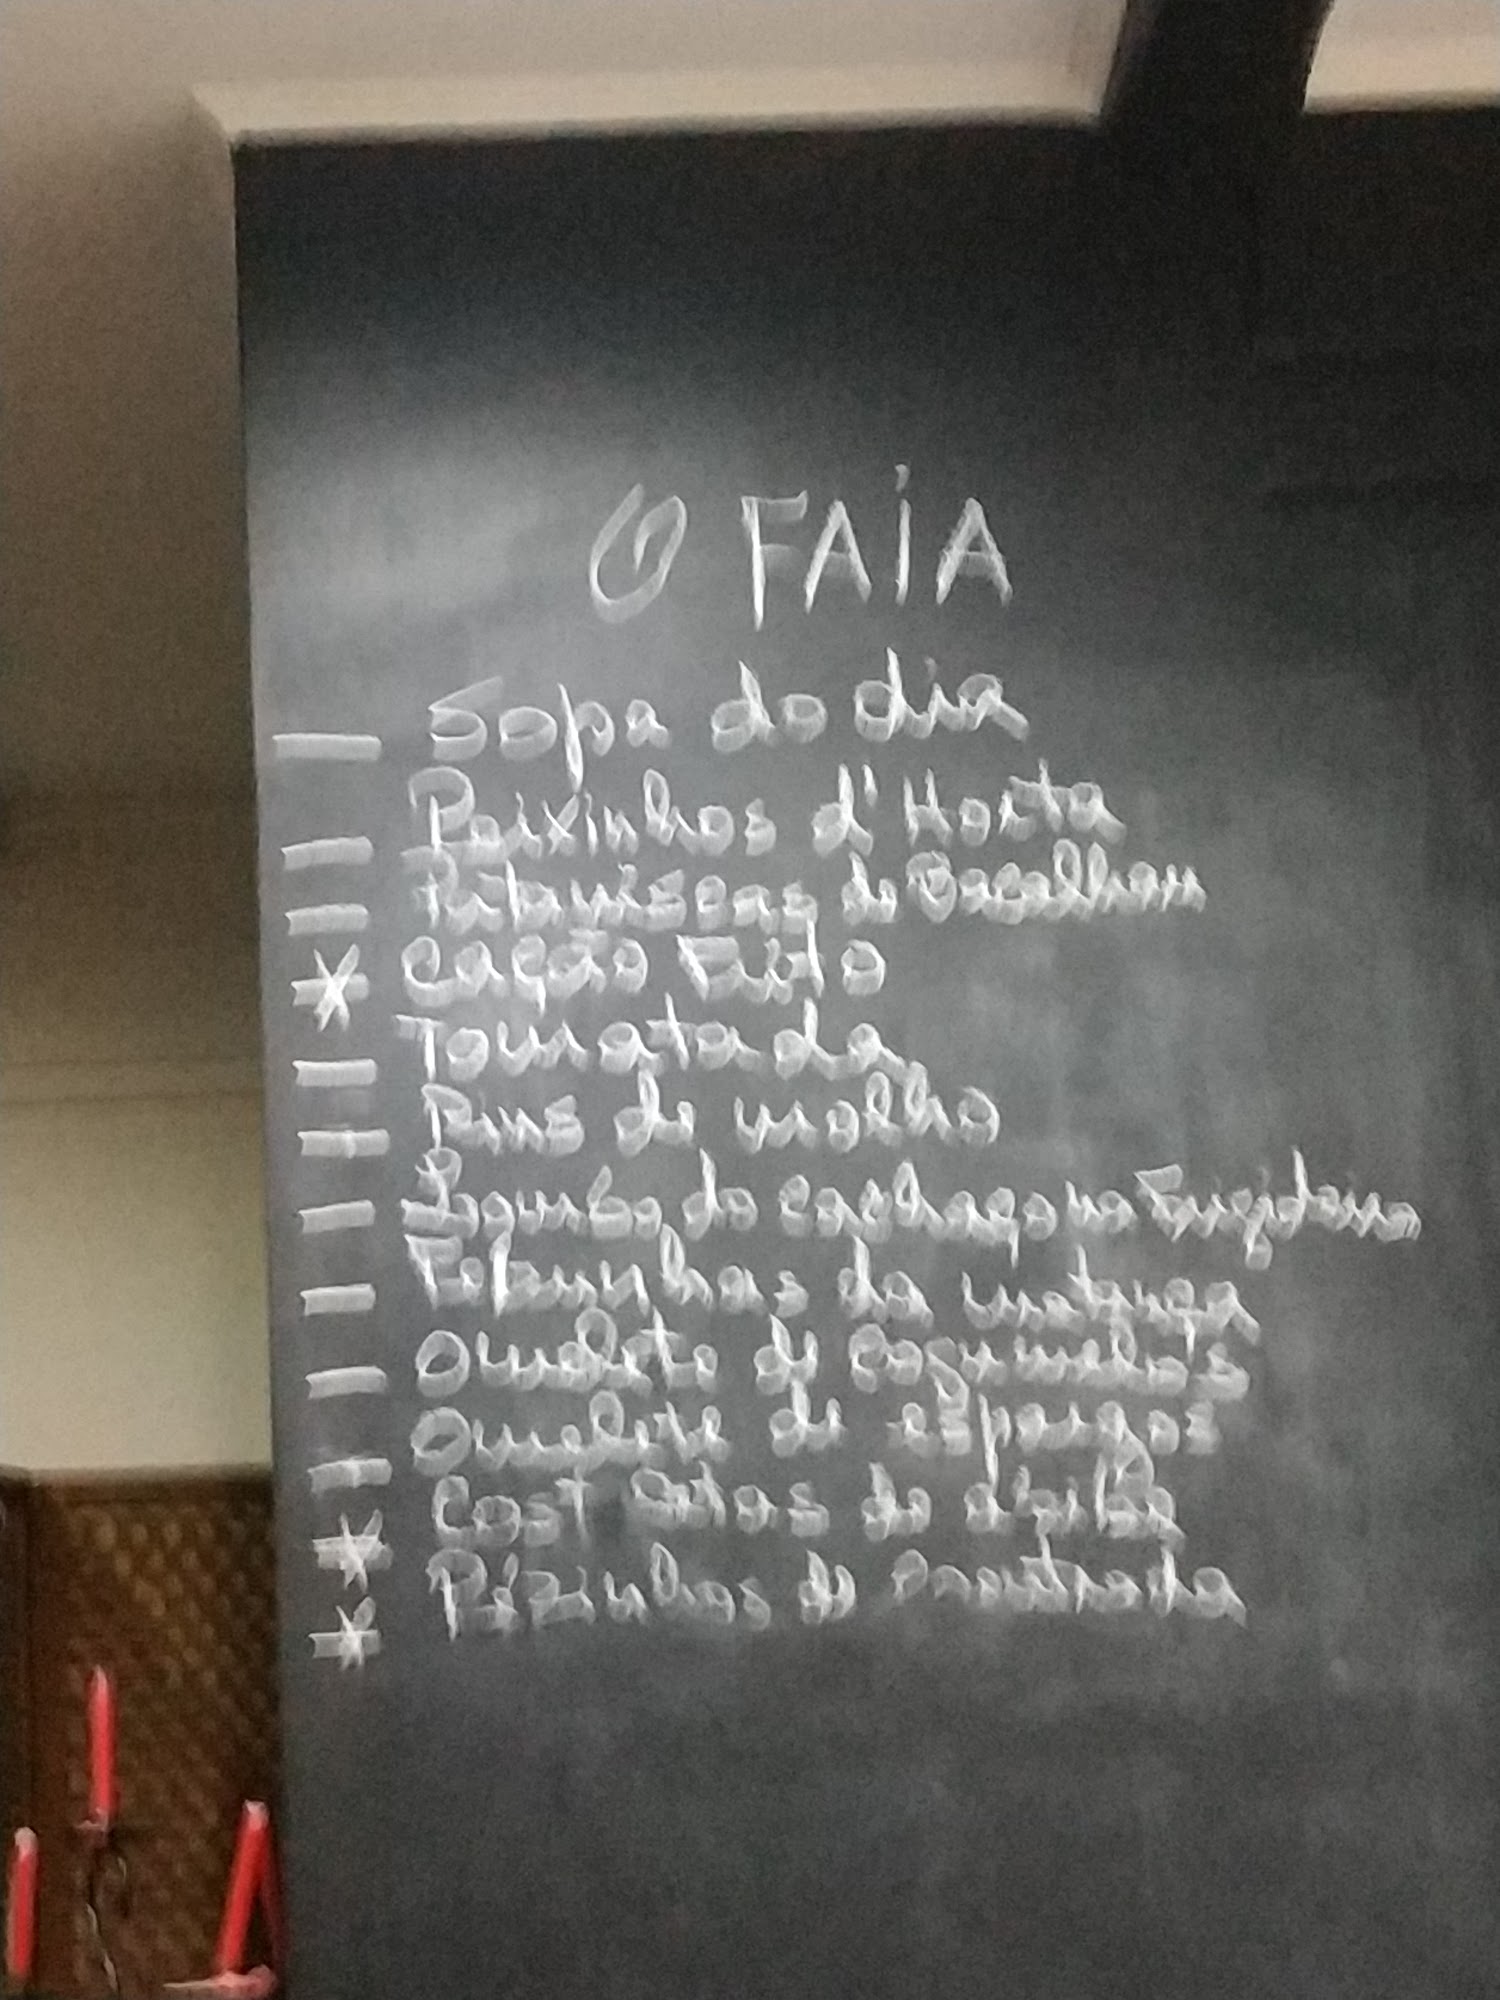 O FAIA
— Sopa do dia
— Peixinhos d'Horta
— Pataniscas de Bacalhau
* Cação Frito
— Tomatada
— Pms de molho
— de cachaço na Frigideira
— Febrinhas da matança
— Omelete de Cogumelos
— Omelete de espargos
* Costeletas de
* Pézinhos de Coentrada